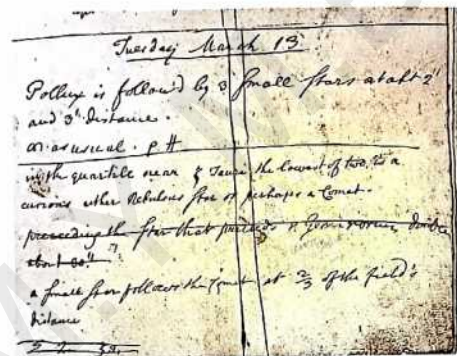 Tuesday March 13
Pollux is follow'd by 3 small stars at abt 2'
and 3' distance.
as usual. p #
in the quartile near ζ Tauri the lowest of two is a
curious either Nebulous star or perhaps a Comet.
preceding the star that precedes η Geminorum double
about 30"
a small star follows the Comet at 2/3 of the field's
distance